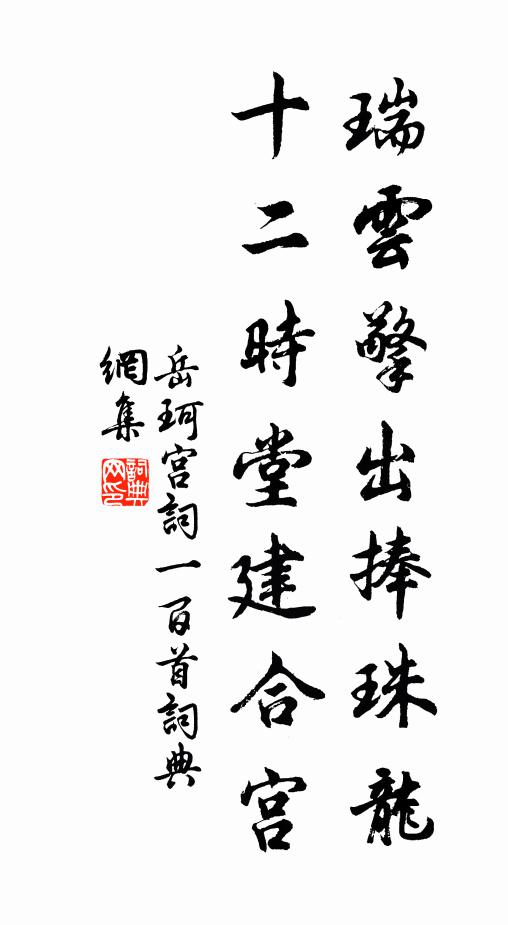 瑞雲擎出捧珠龍
十二時堂建合宮
岳珂宮詞一百首詞典
網集
詞典
网印